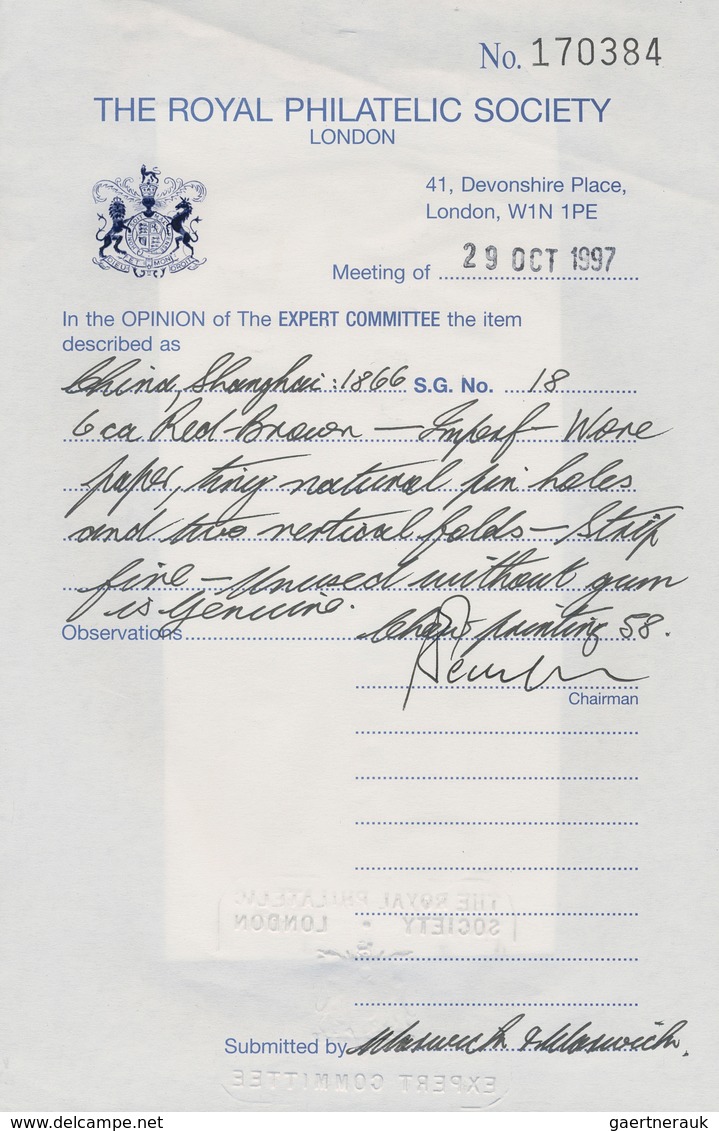 No. 170384
THE ROYAL PHILATELIC SOCIETY
LONDON
41, Devonshire Place,
London, W1N 1PE
Meeting of 29 OCT 1997
In the OPINION of The EXPERT COMMITTEE the item
described as
China, Shanghai: 1866 S.G. No. 18
6ca Red-Brown — Imperf — Wove
paper, tiny natural pin holes
and two vertical folds — Strip
five — Unused without gum
is Genuine.
Observations Chan printing 58.
Chairman
THE ROYAL PHILATELIC
SOCIETY • LONDON
Submitted by Warwick & Warwick.
EXPERT COMMITTEE
delcampe.net
gaertnerauk